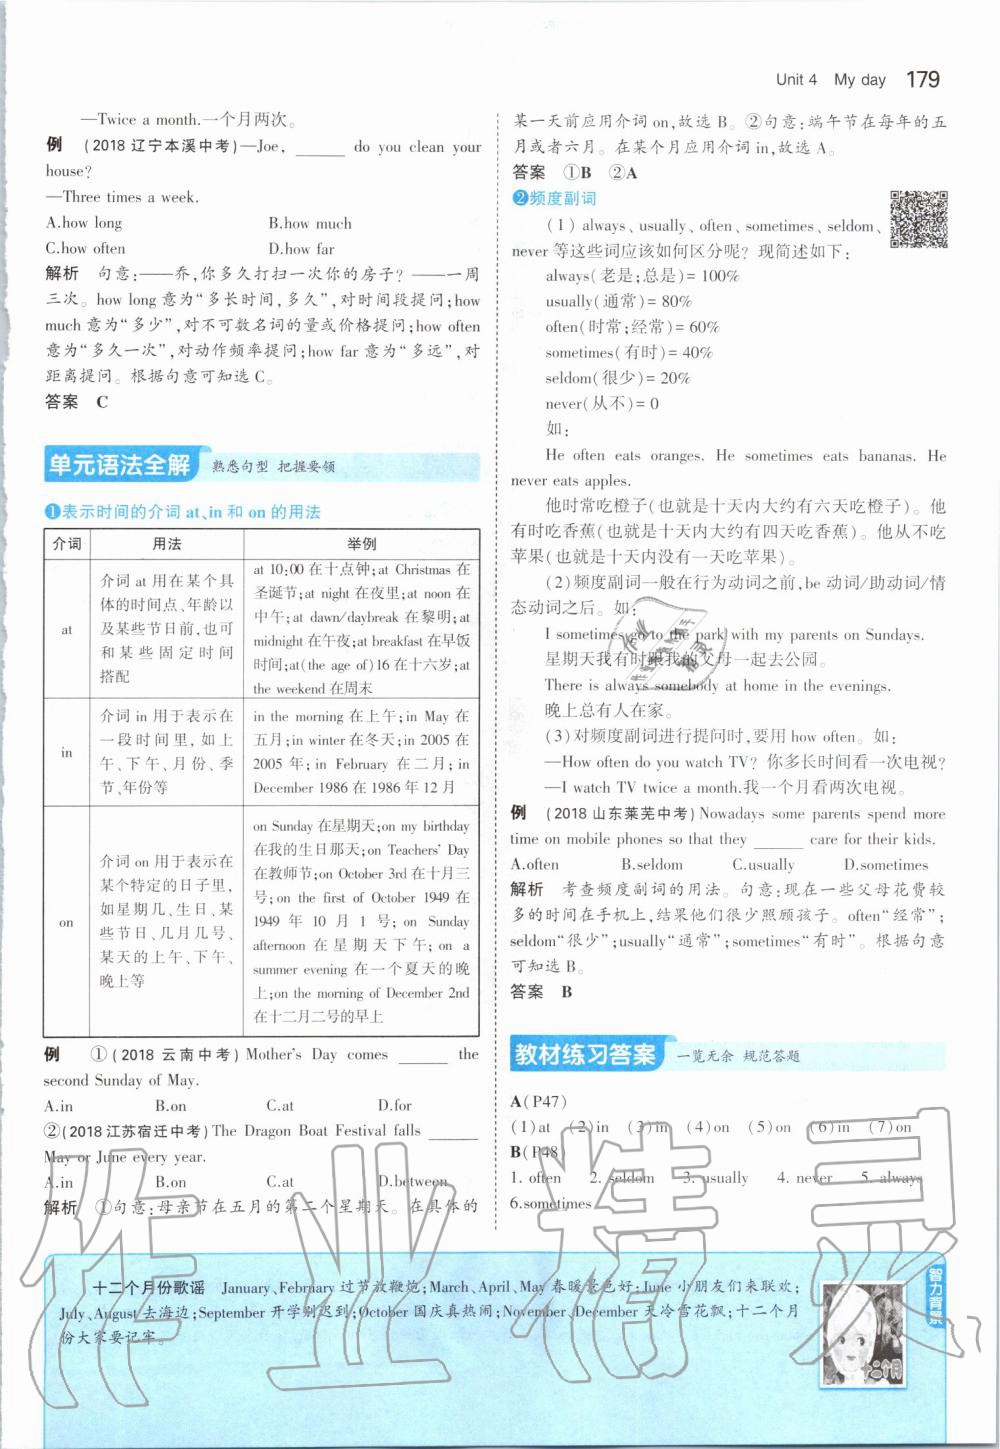 Unit 4 My day 179
—Twice a month.一个月两次。
例 (2018辽宁本溪中考)—Joe, ______ do you clean your
house?
—Three times a week.
A.how long B.how much
C.how often D.how far
解析 句意:——乔,你多久打扫一次你的房子?——一周
三次。how long意为“多长时间,多久”,对时间段提问;how
much意为“多少”,对不可数名词的量或价格提问;how often
意为“多久一次”,对动作频率提问;how far意为“多远”,对
距离提问。根据句意可知选C。
答案 C
单元语法全解 熟悉句型 把握要领
❶表示时间的介词at、in和on的用法
介词 用法 举例
at
介词at用在某个具
体的时间点、年龄以
及某些节日前,也可
和某些固定时间
搭配
at 10:00在十点钟;at Christmas在
圣诞节;at night在夜里;at noon在
中午;at dawn/daybreak在黎明;at
midnight在午夜;at breakfast在早饭
时间;at(the age of)16在十六岁;at
the weekend在周末
in
介词in用于表示在
一段时间里,如上
午、下午、月份、季
节、年份等
in the morning在上午;in May在
五月;in winter在冬天;in 2005在
2005年;in February在二月;in
December 1986在1986年12月
on
介词on用于表示在
某个特定的日子里,
如星期几、生日、某
些节日、几月几号、
某天的上午、下午、
晚上等
on Sunday在星期天;on my birthday
在我的生日那天;on Teachers' Day
在教师节;on October 3rd在十月三
号;on the first of October 1949在
1949年10月1号;on Sunday
afternoon在星期天下午;on a
summer evening在一个夏天的晚
上;on the morning of December 2nd
在十二月二号的早上
例 ①(2018云南中考)Mother's Day comes ______ the
second Sunday of May.
A.in B.on C.at D.for
②(2018江苏宿迁中考)The Dragon Boat Festival falls ______
May or June every year.
A.in B.on C.at D.between
解析 ①句意:母亲节在五月的第二个星期天。在具体的
某一天前应用介词on,故选B。②句意:端午节在每年的五
月或者六月。在某个月应用介词in,故选A。
答案 ①B ②A
❷频度副词
(1)always、usually、often、sometimes、seldom、
never等这些词应该如何区分呢?现简述如下:
always(老是;总是)=100%
usually(通常)=80%
often(时常;经常)=60%
sometimes(有时)=40%
seldom(很少)=20%
never(从不)=0
如:
He often eats oranges. He sometimes eats bananas. He
never eats apples.
他时常吃橙子(也就是十天内大约有六天吃橙子)。他
有时吃香蕉(也就是十天内大约有四天吃香蕉)。他从不吃
苹果(也就是十天内没有一天吃苹果)。
(2)频度副词一般在行为动词之前,be动词/助动词/情
态动词之后。如:
I sometimes go to the park with my parents on Sundays.
星期天我有时跟我的父母一起去公园。
There is always somebody at home in the evenings.
晚上总有人在家。
(3)对频度副词进行提问时,要用how often。如:
—How often do you watch TV? 你多长时间看一次电视?
—I watch TV twice a month.我一个月看两次电视。
例 (2018山东莱芜中考)Nowadays some parents spend more
time on mobile phones so that they ______ care for their kids.
A.often B.seldom C.usually D.sometimes
解析 考查频度副词的用法。句意:现在一些父母花费较
多的时间在手机上,结果他们很少照顾孩子。often“经常”;
seldom“很少”;usually“通常”;sometimes“有时”。根据句意
可知选B。
答案 B
教材练习答案 一览无余 规范答题
A(P47)
(1)at (2)in (3)in (4)on (5)on (6)in (7)on
B(P48)
1. often 2. seldom 3. usually 4. never 5. always
6.sometimes
十二个月份歌谣 January、February过节放鞭炮;March、April、May春暖景色好;June小朋友们来联欢;
July、August去海边;September开学别迟到;October国庆真热闹;November、December天冷雪花飘;十二个月
份大家要记牢。
智力背景
十二个月
作业精灵